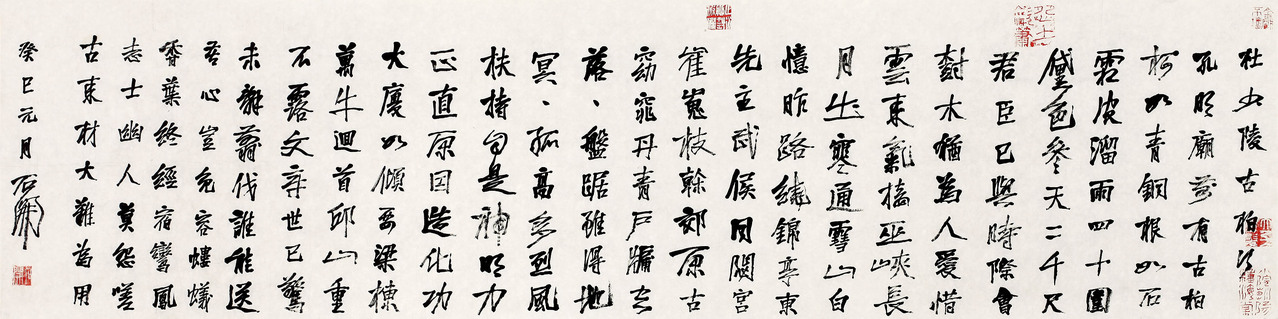 杜少陵古柏行
孔明廟前有古柏
柯如青銅根如石
霜皮溜雨四十圍
黛色參天二千尺
君臣已與時際會
樹木猶為人愛惜
雲來氣接巫峽長
月出寒通雪山白
憶昨路繞錦亭東
先主武侯同閟宮
崔嵬枝幹郊原古
窈窕丹青戶牖空
落、盤踞雖得地
冥、孤高多烈風
扶持自是神明力
正直原因造化功
大廈如傾要梁棟
萬牛迴首邱山重
不露文章世已驚
未辭翦伐誰能送
苦心豈免容螻蟻
香葉終經宿鸞鳳
志士幽人莫怨嗟
古來材大難為用
癸巳元月 石開